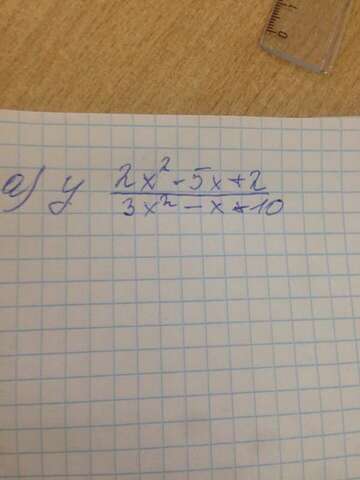 a) y 2x²-5x+2
3x²-x-10